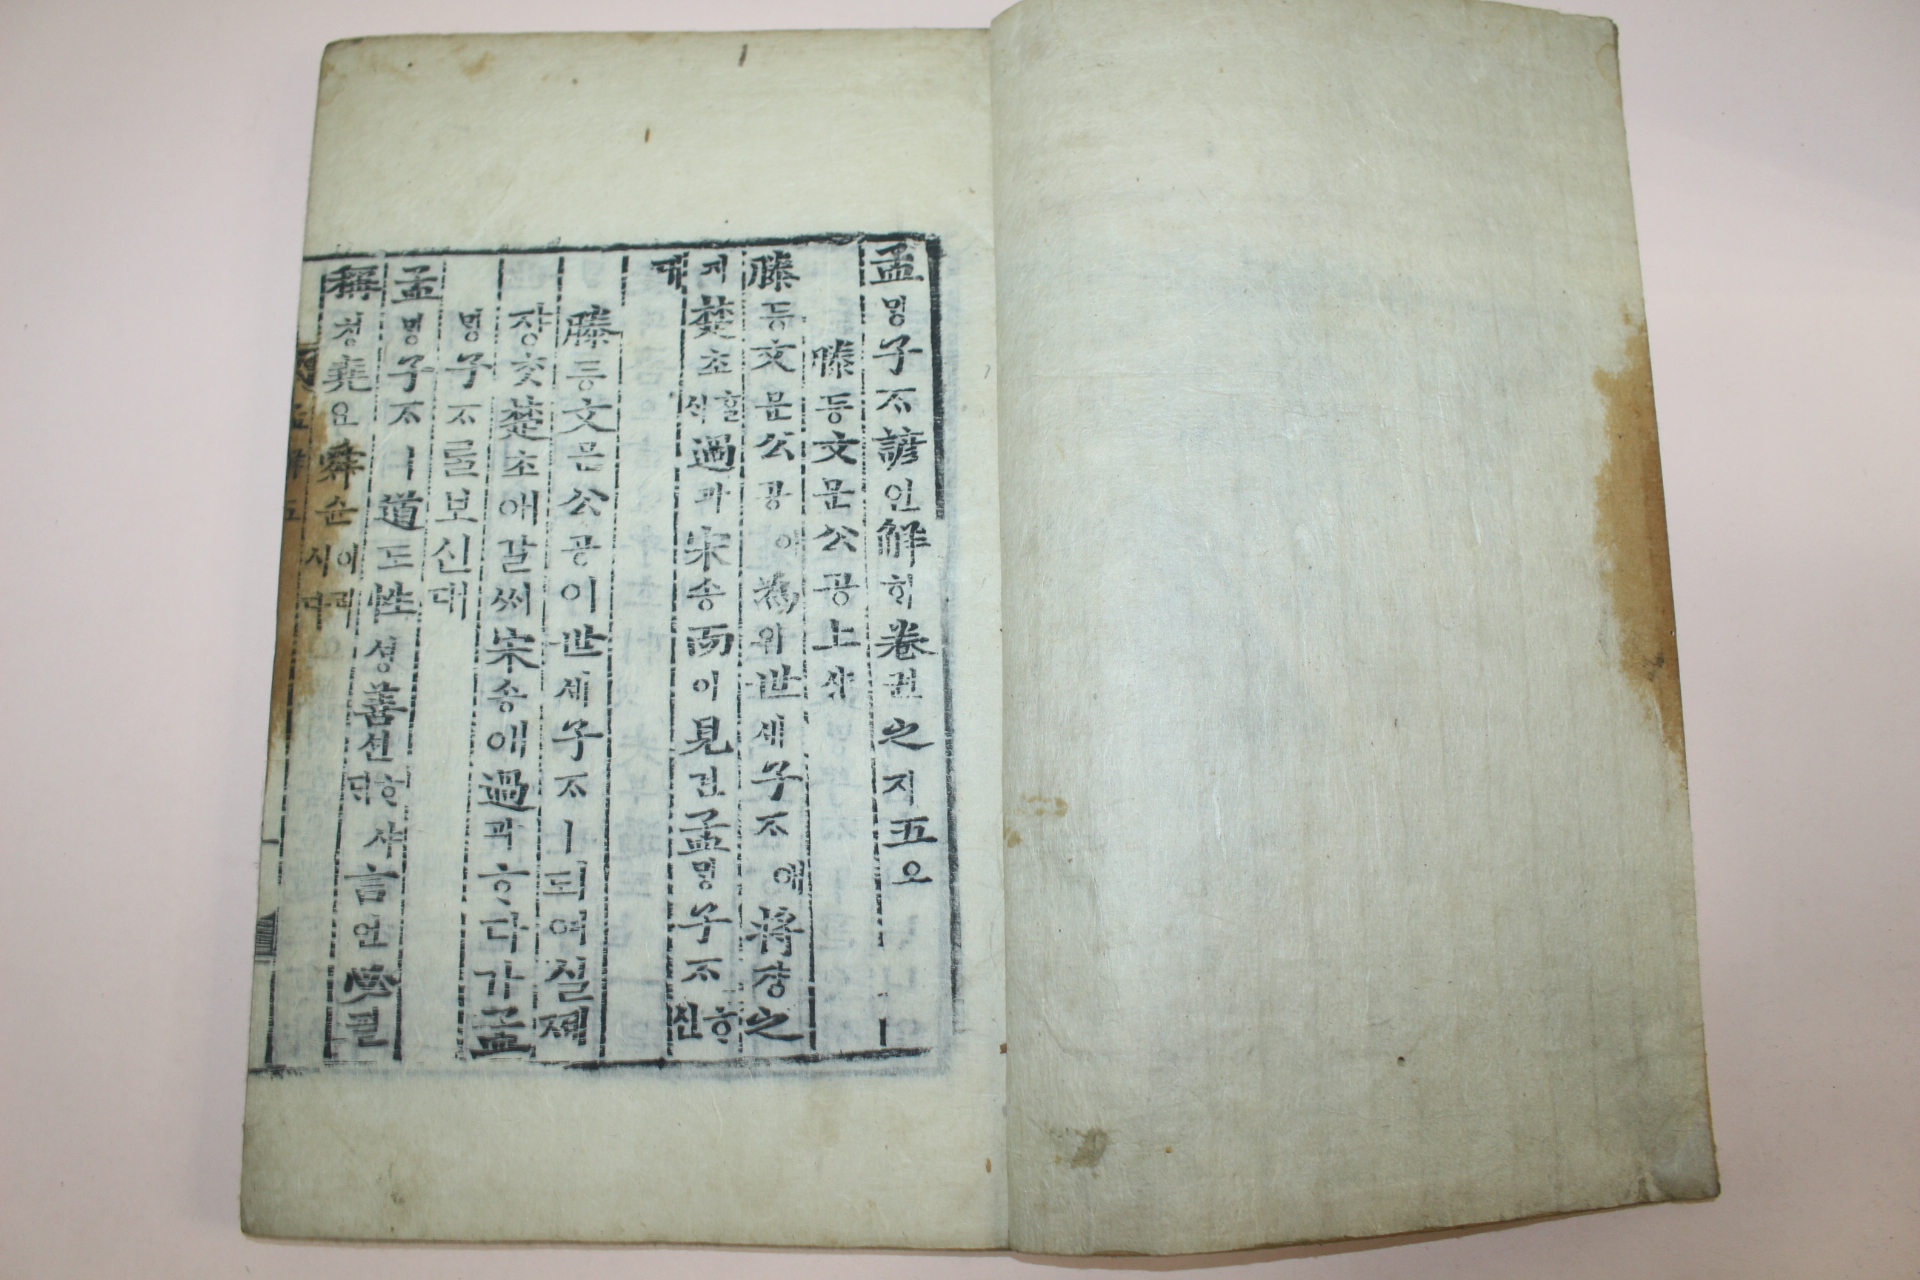 孟ᄆᆡᆼ子ᄌᆞ諺언解ᄒᆡ卷권之지五오
滕등文문公공上샹
滕등文문公공이爲위世셰子ᄌᆞ애將쟝之
지楚초ᄒᆞᆯᄉᆡ過과宋송而이見견孟ᄆᆡᆼ子ᄌᆞᄒᆞ신
대
滕등文문公공이世셰子ᄌᆞㅣ되여실제
쟝ᄎᆞᆺ楚초애갈ᄊᆡ宋송애過과ᄒᆞ다가孟
ᄆᆡᆼ子ᄌᆞᄅᆞᆯ보신대
孟ᄆᆡᆼ子ᄌᆞㅣ道도性셩善션ᄒᆞ샤ᄃᆡ言언必필
稱칭堯요舜슌이러시다
孟解五